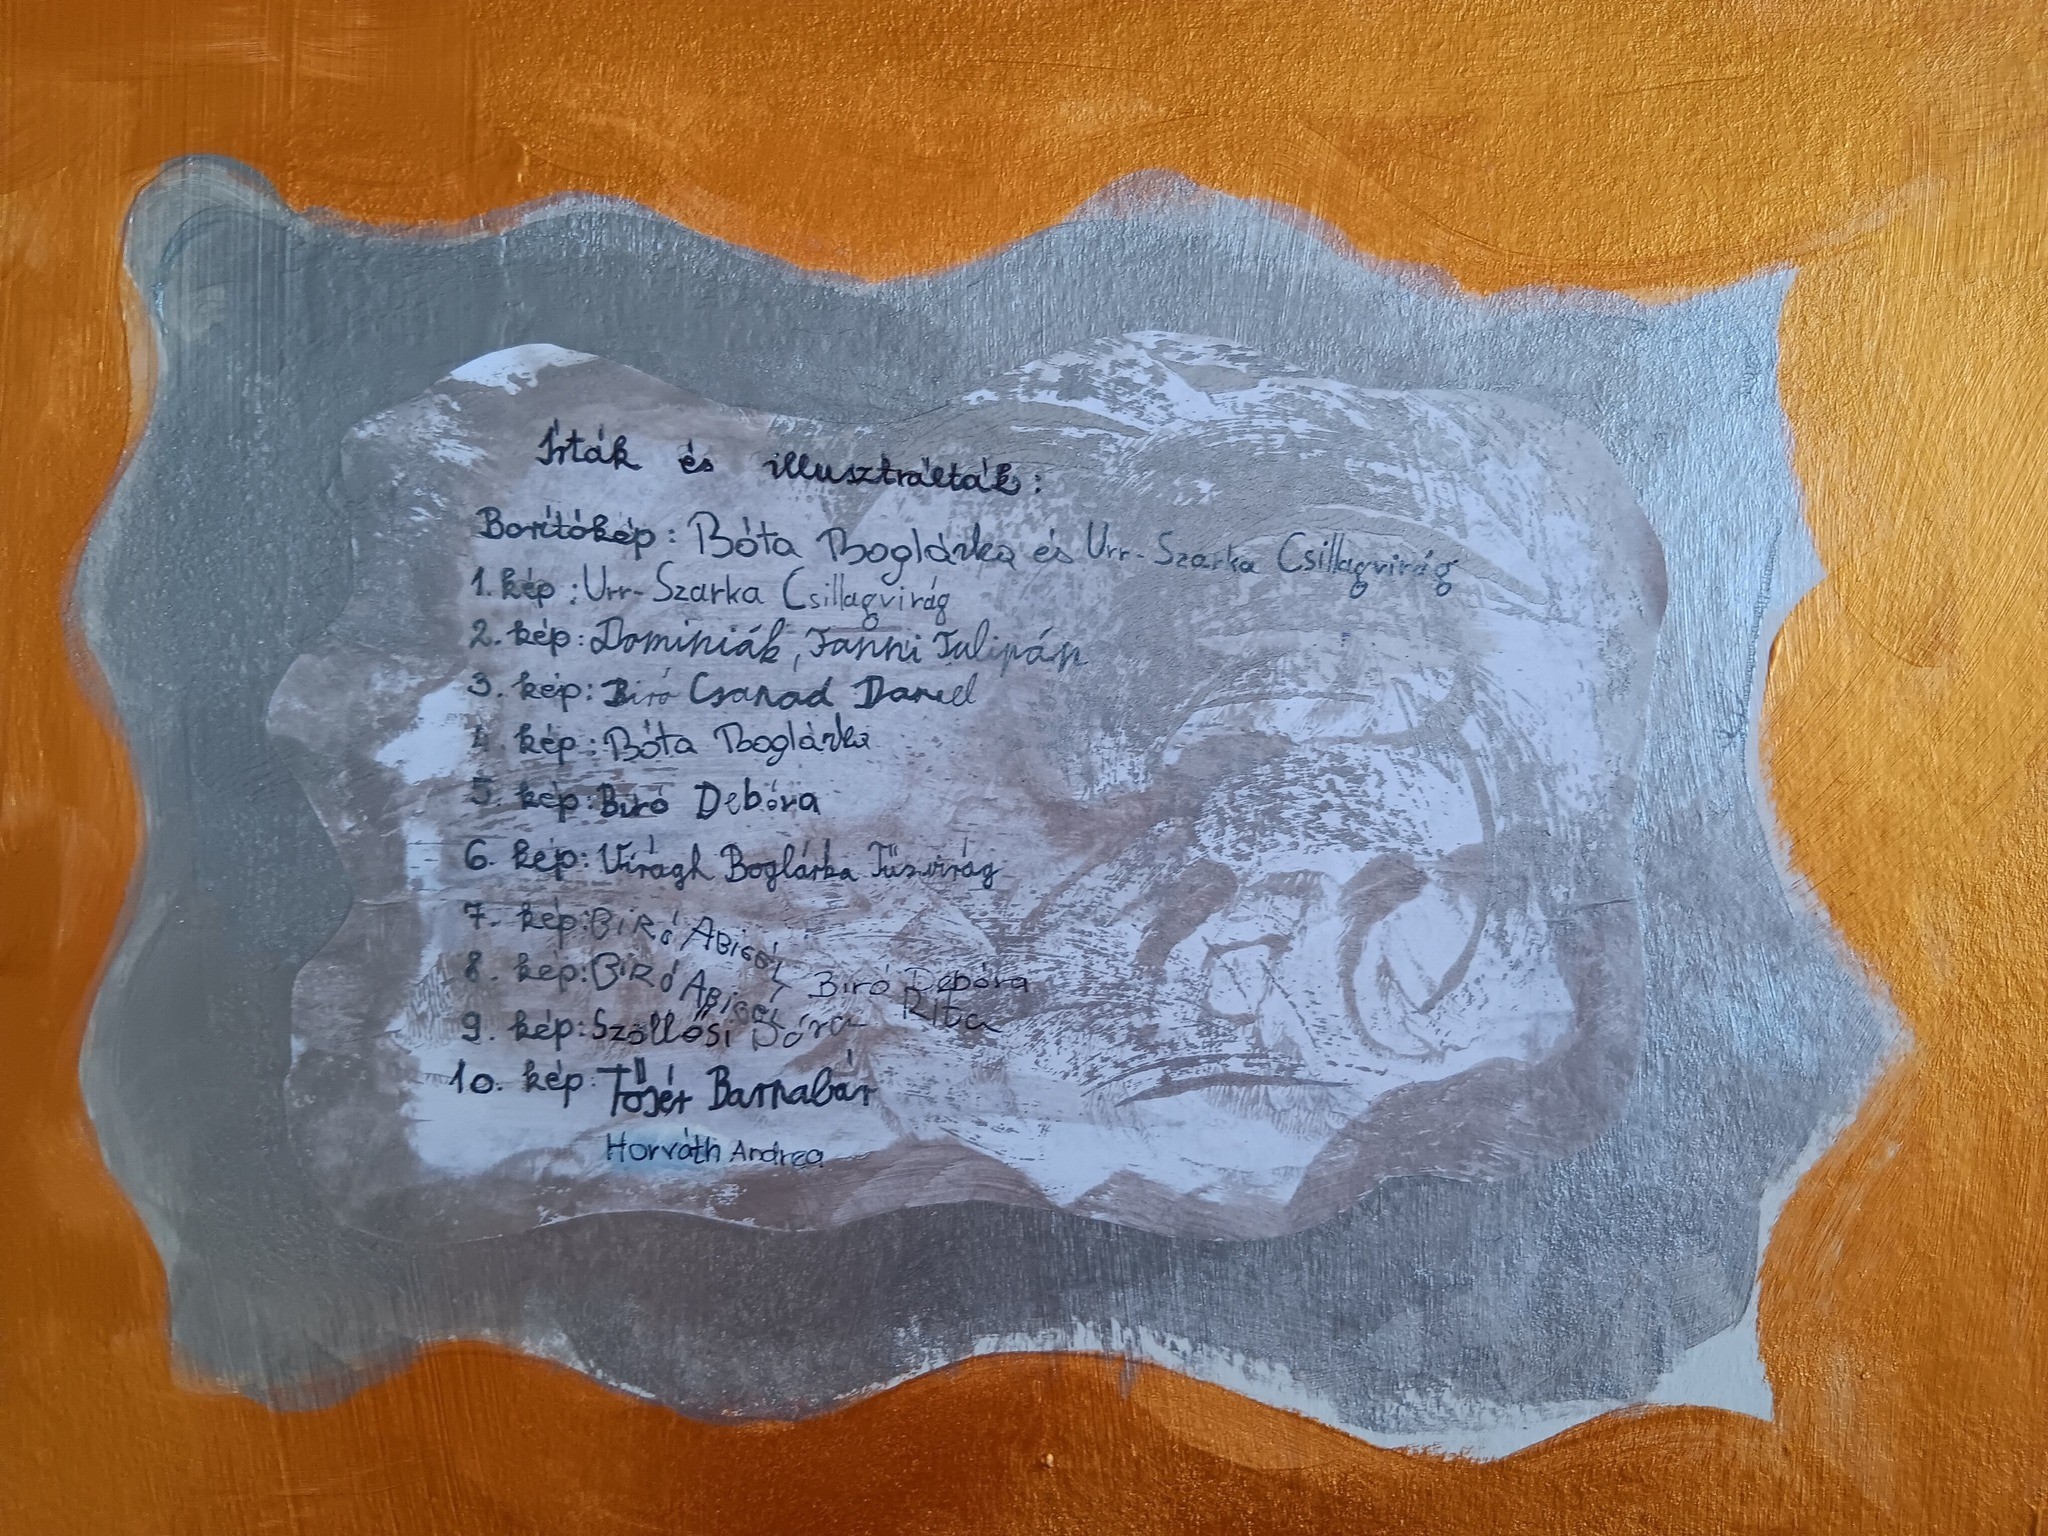 Írták és illusztrálták:
Borítókép: Bóta Boglárka és Urr-Szarka Csillagvirág
1. kép: Urr-Szarka Csillagvirág
2. kép: Dominiák, Fanni Tulipán
3. kép: Biró Csanad Daniel
4. kép: Bóta Boglárka
5. kép: Biró Debóra
6. kép: Virágh Boglárka Tűzvirág
7. kép: BiRó ABigél
8. kép: BiRó ABigél Biró Debóra
9. kép: Szöllősi Dóra Rita
10. kép: Tőzér Barnabár
Horváth Andrea